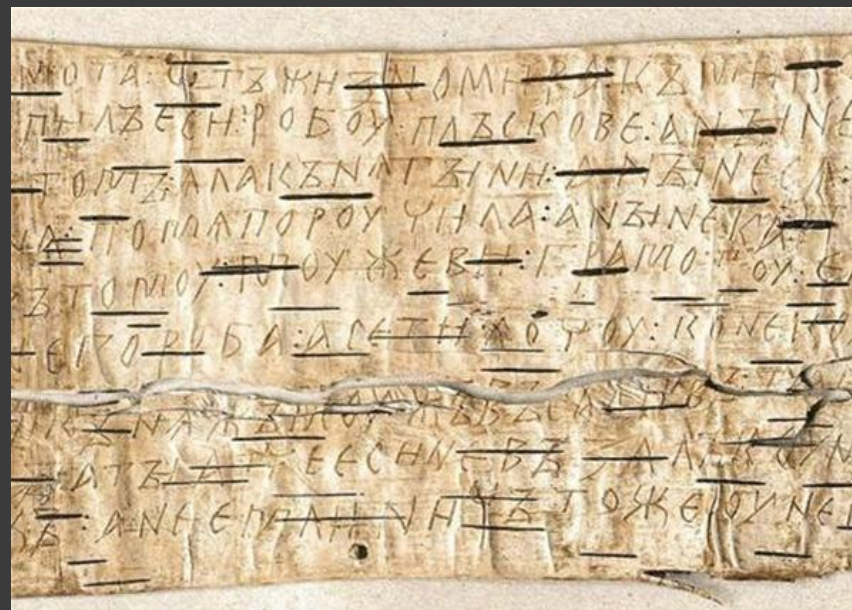 МОТА:ѾТЪЖИЗНОМИРА:КЪМИ
ПИЛЪЕСИ:РОБОУ:ПЛЪСКОВЕ:АНЫНЕ
ТОМЪ:ѦЛАКЪНѦГЫНИ:АНЫНЕСѦ:
НА:ПОМѦПОРОУЧИЛА:АНЫНЕКА:
ЪТОМОУ:МОУЖЕВИ:ГРАМОТОУ:Е
ЕГОРОБА:АСЕТИХОЧОУ:КОНЕКО
КЪНѦЖЪМОУЖЪВЪСАДИВЪ:ТА
АТЫАТЧЕЕСИНЕВЪЗАЛЪКОУН
ХЪ:АНЕЕМЛИ:НИЧЪТОЖЕОУНЕ